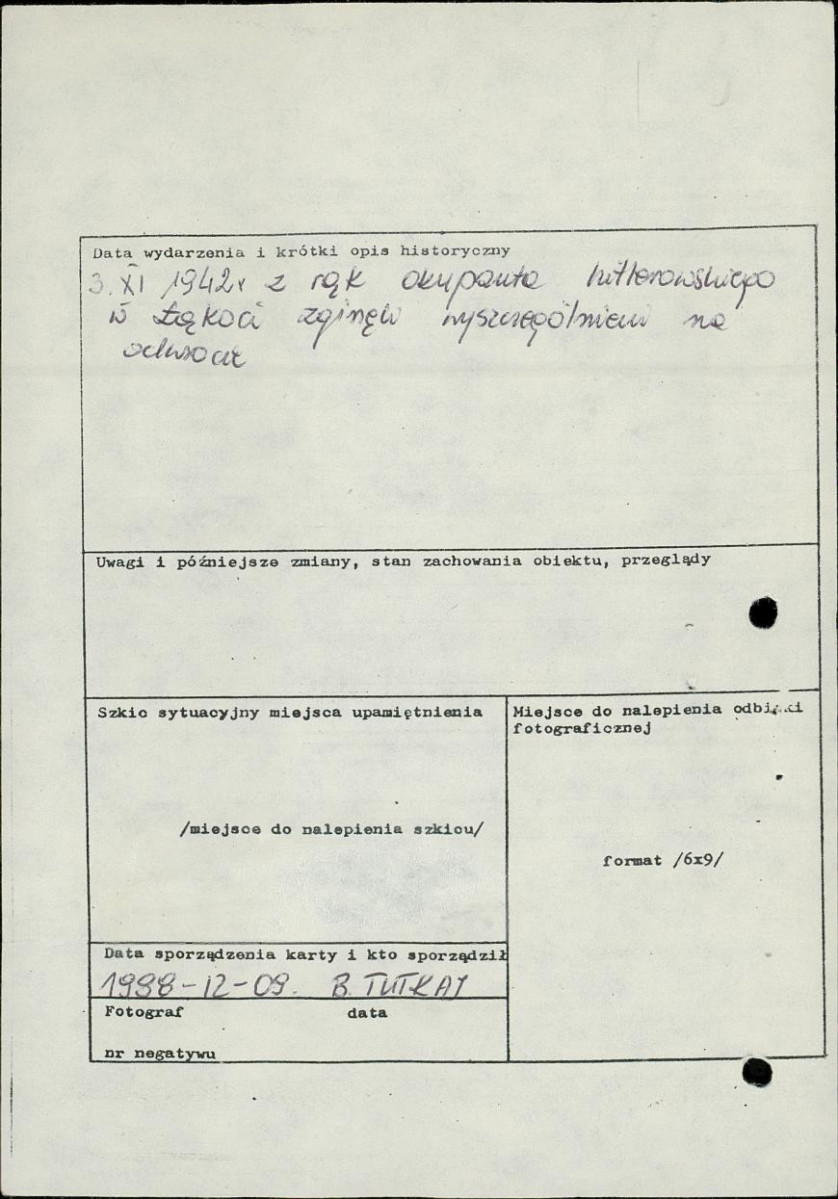 Data wydarzenia i krótki opis historyczny
3. XI 1942r z rąk okupanta hitlerowskiego
w Łąkoci zginęli wyszczególnieni na
odwrocie
Uwagi i późniejsze zmiany, stan zachowania obiektu, przeglądy
Szkic sytuacyjny miejsca upamiętnienia
/miejsce do nalepienia szkicu/
Miejsce do nalepienia odbitki
fotograficznej
format /6x9/
Data sporządzenia karty i kto sporządził
1988-12-09. B. TUTKAJ
Fotograf data
nr negatywu